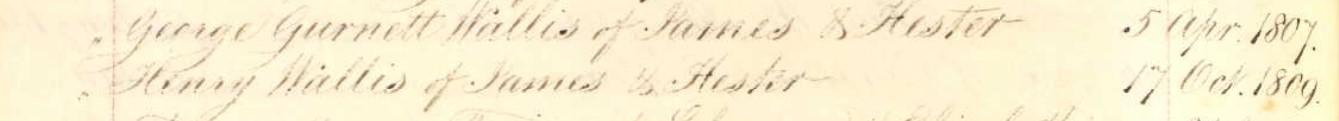 " George Gurnett Wallis of James & Hester 5 Apr. 1807.
" Henry Wallis of James & Hester 17 Oct. 1809.